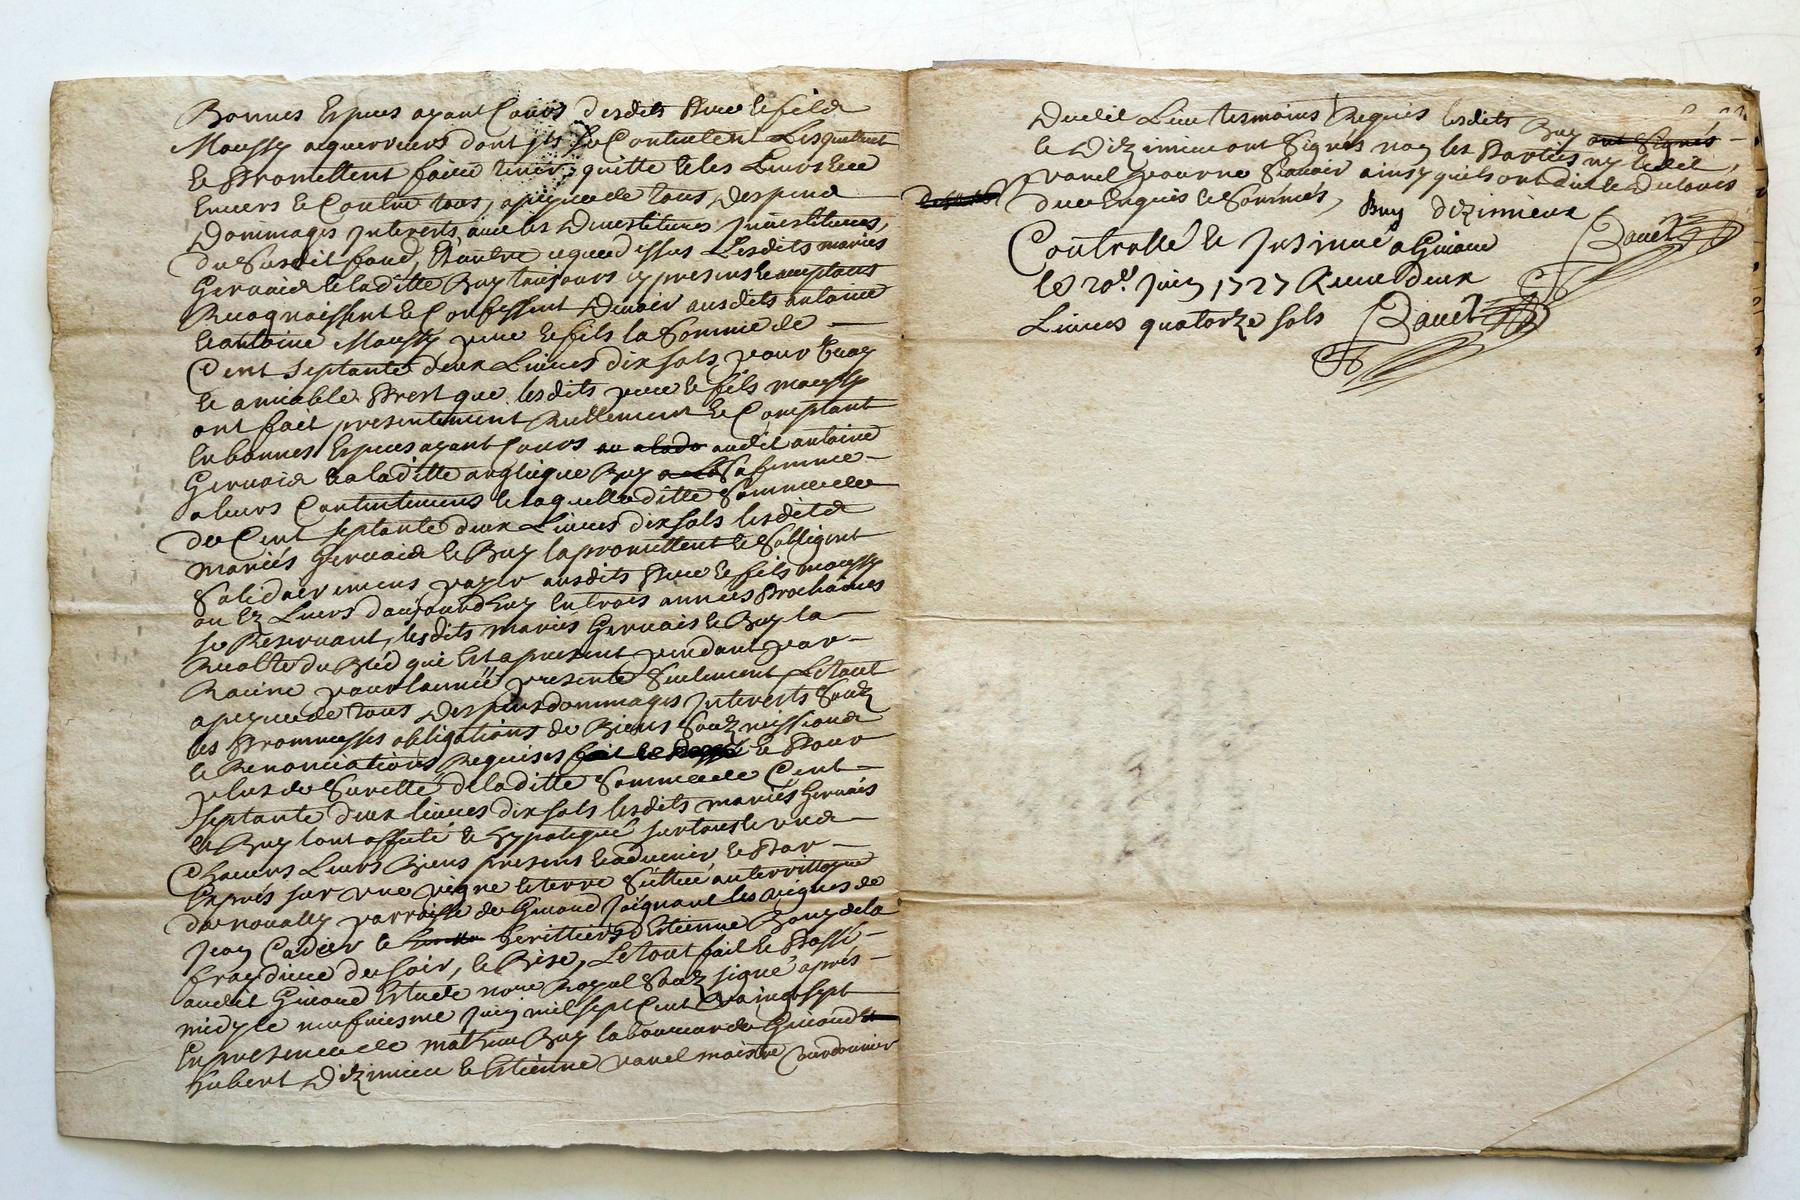 Bonnes Espices ayant Cours desdits Pere et fils
Moussy acquerreurs dont ils se Contentent Lesquittent
Et Promettent faire tenir quitte et les Leurs
Envers et Contre tous, a peyne de tous, despend
Dommages Interests, avec les Devestitures Investitures,
du Susdit fond, Lesdits mariés
Gervais et laditte Buy toujours icy presens et acceptans
Recognoissent et Confessent Devoir ausdits antoine
et antoine Moussy pere et fils la Somme de
Cent Septante deux Livres dix sols, pour
et amiable Prest que lesdits pere et fils moussy
ont fait presentement Reellement et Comptant
En bonnes Espices ayant Cours audit antoine
Gervais et a laditte Buy Sa femme
a leurs Contentemens et laquelle ditte Somme
de Cent septante deux Livres dix sols lesdits
mariés Gervais et Buy la promettent et Sobligent
Solidairement payer ausdits Pere et fils moussy
ou Ez Leurs daujourdhuy En trois années Prochaines
se Reservant, lesdits mariés Gervais et Buy la
Recolte du Bled qui Est a present pendant par
Racine pour lannée presente Seulement Le tout
a peyne de tous Despens dommages Interests Soubz
les Promesses obligations de Biens Soubzmissions
et Renonciations Requises fait et Passé et Pour
plus de Surette de laditte Somme de Cent
septante deux livres dix sols lesdits mariés Gervais
et Buy l'ont affecté et hypotequé sur tous et un
Chacuns Leurs Biens presens et advenir et Par
Exprés sur une vigne et terre Scittuée au territtoire
de noually parroisse de Givord joignant les vignes de
Jean Cadier et heritiers d'Etienne de la
du soir, et Bise, Le tout fait et Passé
audit Givord Estude nore Royal Soubz signé aprés
midy le neufviesme Juin mil sept Cent vaingt sept
En presence de mathieu Buy laboureur de Givord
hubert Dizimieu et Etienne ravel maistre Cordonnier
Dudit Lieu tesmoins Requis lesdits Buy ont Signés
et Dizimieu ont Signés non les Parties ny ledit
ravel pour ne Scavoir ainsy quils ont dit et Declarés
de ce Enquis et Sommés, Buy dizimieux
Controllé et Insinué a Givord
le 20e Juin 1727 Receu Deux
Livres quatorze sols